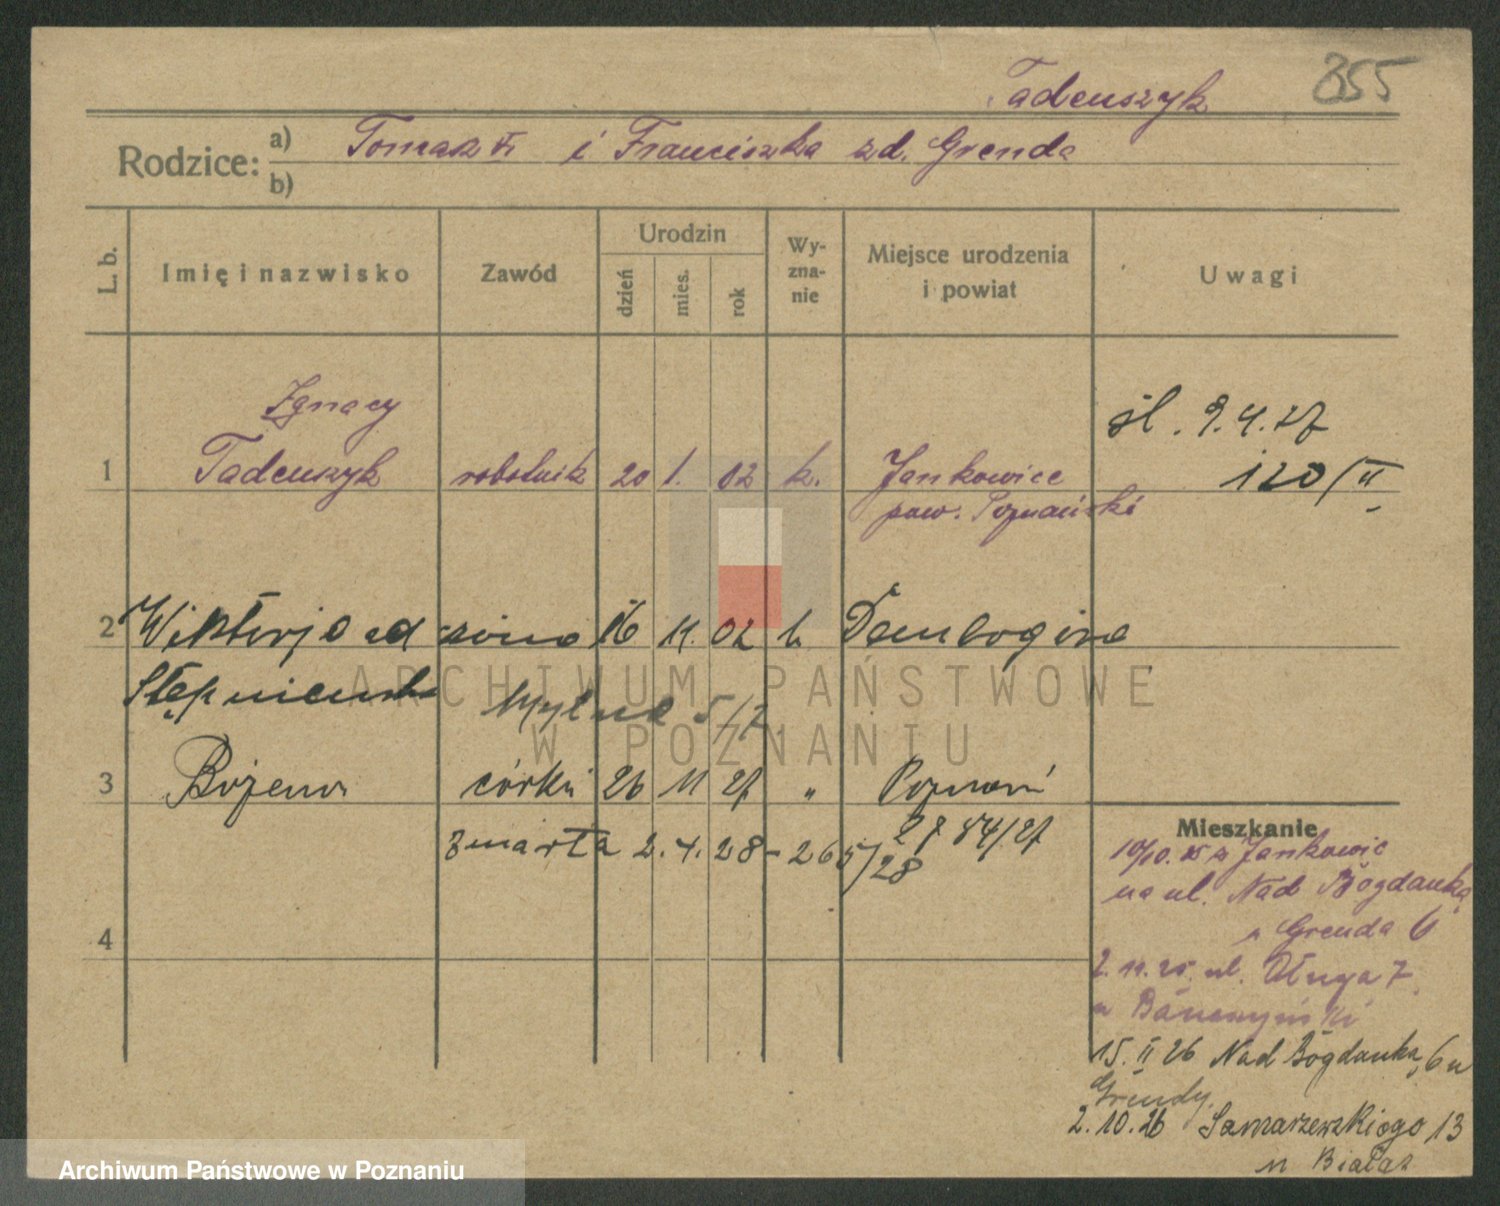 Tadeuszyk
355
Rodzice: a) Tomasz i Franciszka zd. Grenda
b)
L. b. Imię i nazwisko Zawód Urodzin dzień mies. rok Wy-zna-nie Miejsce urodzenia i powiat Uwagi
Ignacy
śl. 9.4.27
1 Tadeuszyk robotnik 20 1. 02 k. Jankowice 120/II
pow. Poznański
2 Wiktorja zd żona 16 11. 02 k. Dembogóra
Stępniewska 5/7
3 Bożena córka 26 11 27 " Poznań
2784/27
zmarła 2.4.28 - 265/28
4
Mieszkanie
10/10. 25 z Jankowic
na ul. Nad Bogdanką
u Grenda 6
2.11.25. ul. Długa 7
u
15. II 26 Nad Bogdanką 6 u
Grendy.
2.10.26 Samarzewskiego 13
u Białas
ARCHIWUM PAŃSTWOWE
W POZNANIU
Archiwum Państwowe w Poznaniu